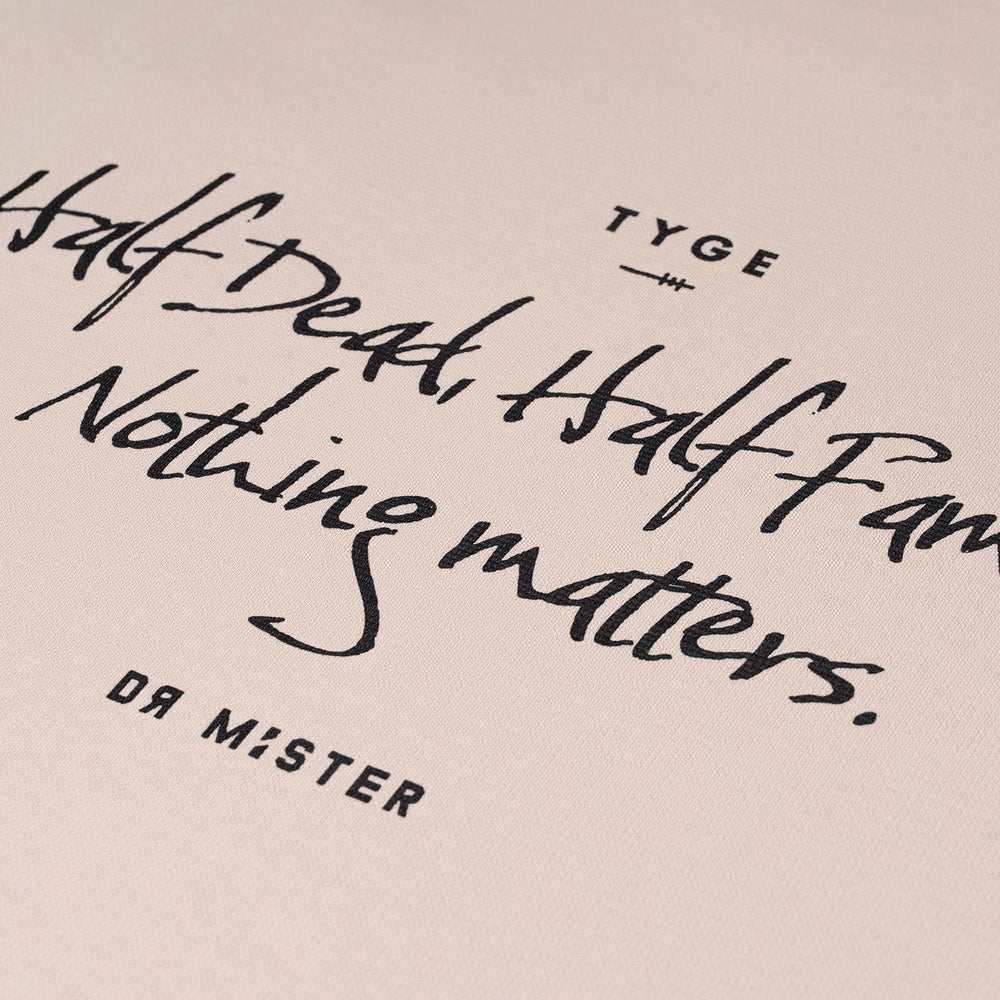 TYGE
Half Dead, Half Fam
Nothing matters.
DЯ MISTER